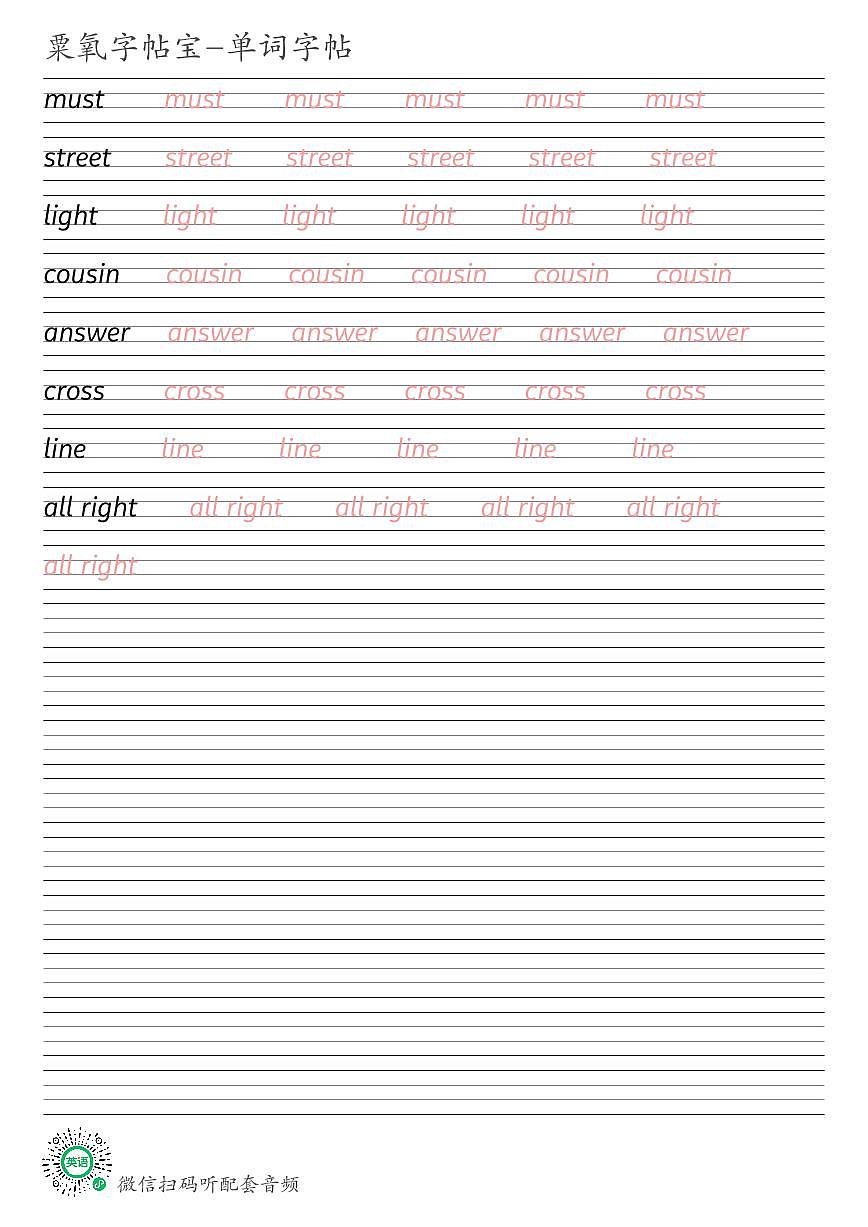 粟氧字帖宝-单词字帖
must must must must must must
street street street street street street
light light light light light light
cousin cousin cousin cousin cousin cousin
answer answer answer answer answer answer
cross cross cross cross cross cross
line line line line line line
all right all right all right all right all right
all right
英语
微信扫码听配套音频